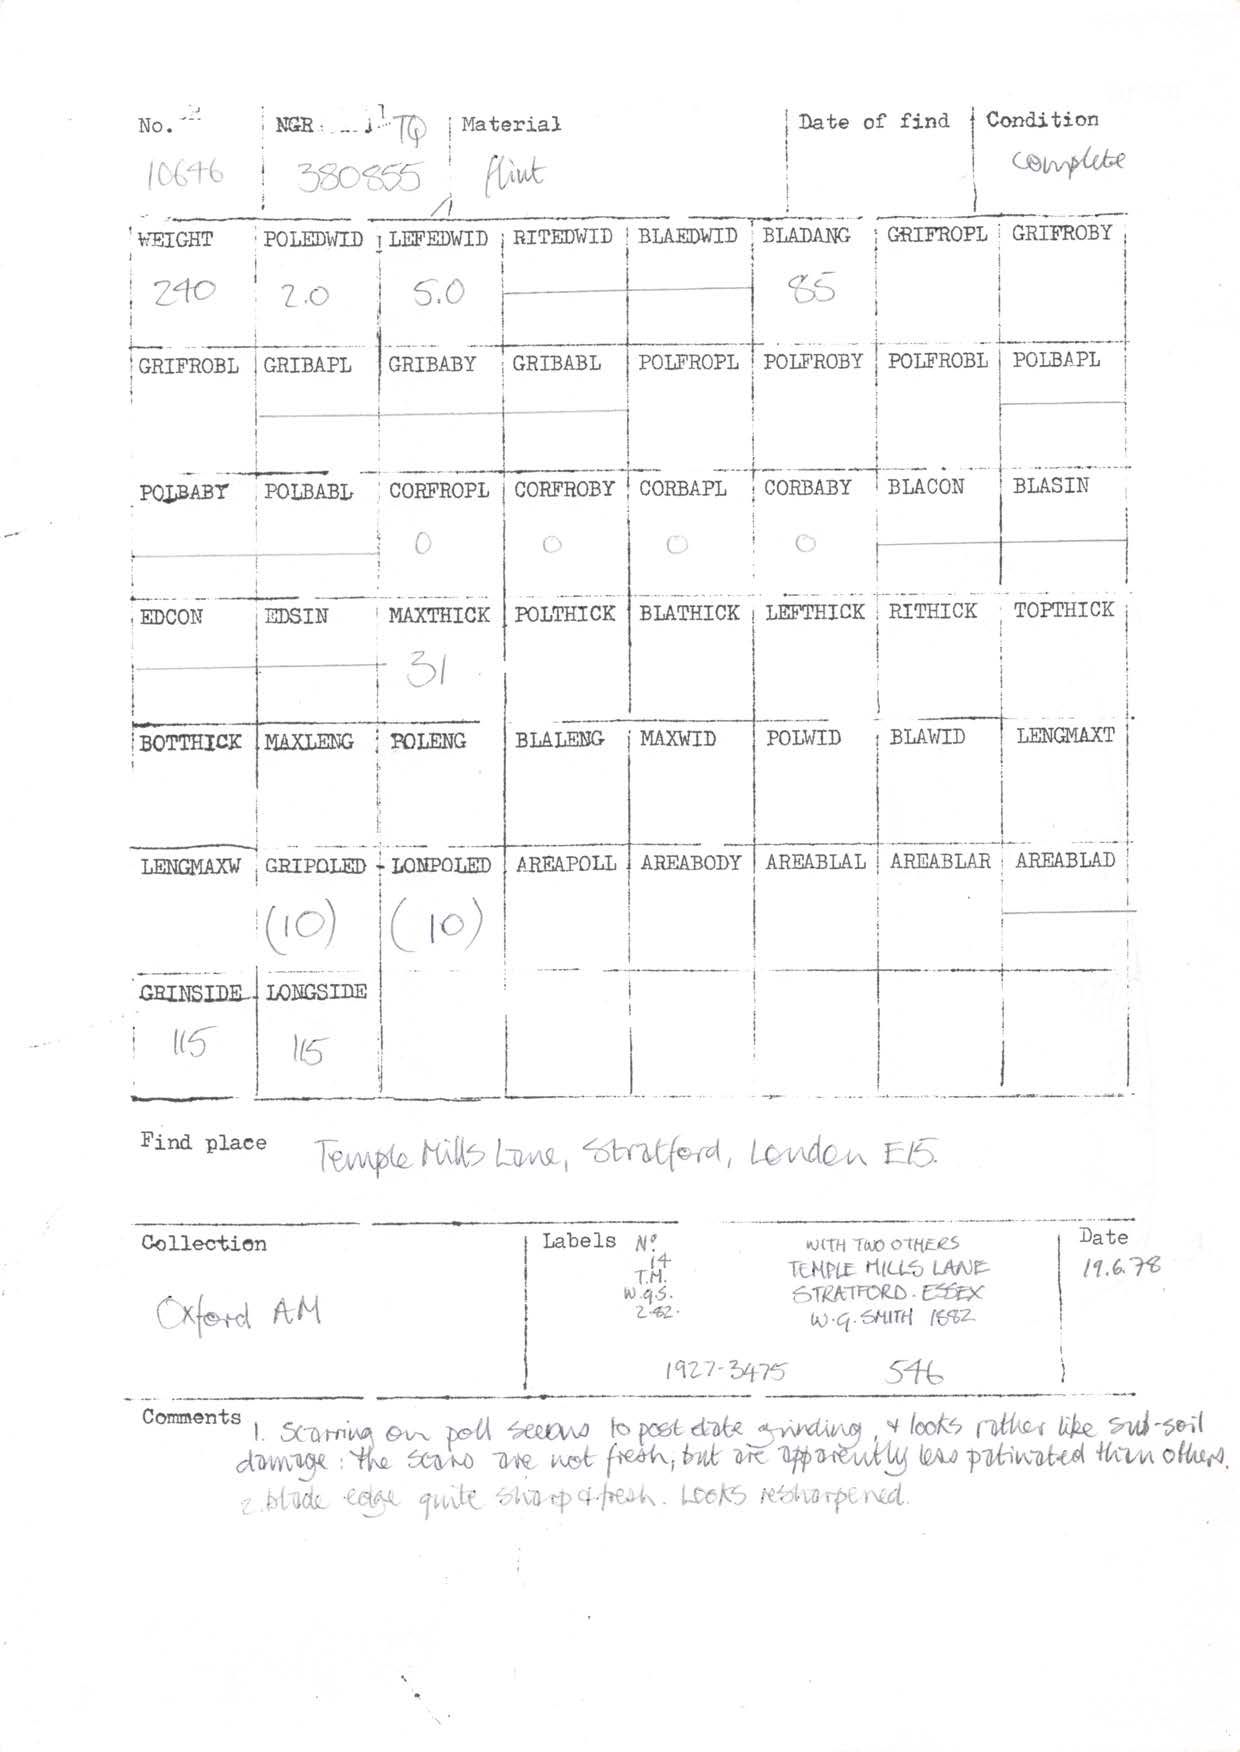 No. NGR TQ Material Date of find Condition
10646 380855 flint complete
WEIGHT POLEDWID LEFEDWID RITEDWID BLAEDWID BLADANG GRIFROPL GRIFROBY
240 2.0 5.0 85
GRIFROBL GRIBAPL GRIBABY GRIBABL POLFROPL POLFROBY POLFROBL POLBAPL
POLBABY POLBABL CORFROPL CORFROBY CORBAPL CORBABY BLACON BLASIN
0 0 0 0
EDCON EDSIN MAXTHICK POLTHICK BLATHICK LEFTHICK RITHICK TOPTHICK
31
BOTTHICK MAXLENG POLENG BLALENG MAXWID POLWID BLAWID LENGMAXT
LENGMAXW GRIPOLED LONPOLED AREAPOLL AREABODY AREABLAL AREABLAR AREABLAD
(10) (10)
GRINSIDE LONGSIDE
115 115
Find place Temple Mills Lane, Stratford, London E15.
Collection
Oxford AM
Labels
No.
14
T.M.
W.G.S.
2-82.
WITH TWO OTHERS
TEMPLE MILLS LANE
STRATFORD. ESSEX
W.G. SMITH 1882
1927-3475 546
Date
19.6.78
Comments 1. Scarring on poll seems to post date grinding, & looks rather like sub-soil
damage: the scars are not fresh, but are apparently less patinated than others.
2. blade edge quite sharp & fresh. Looks resharpened.